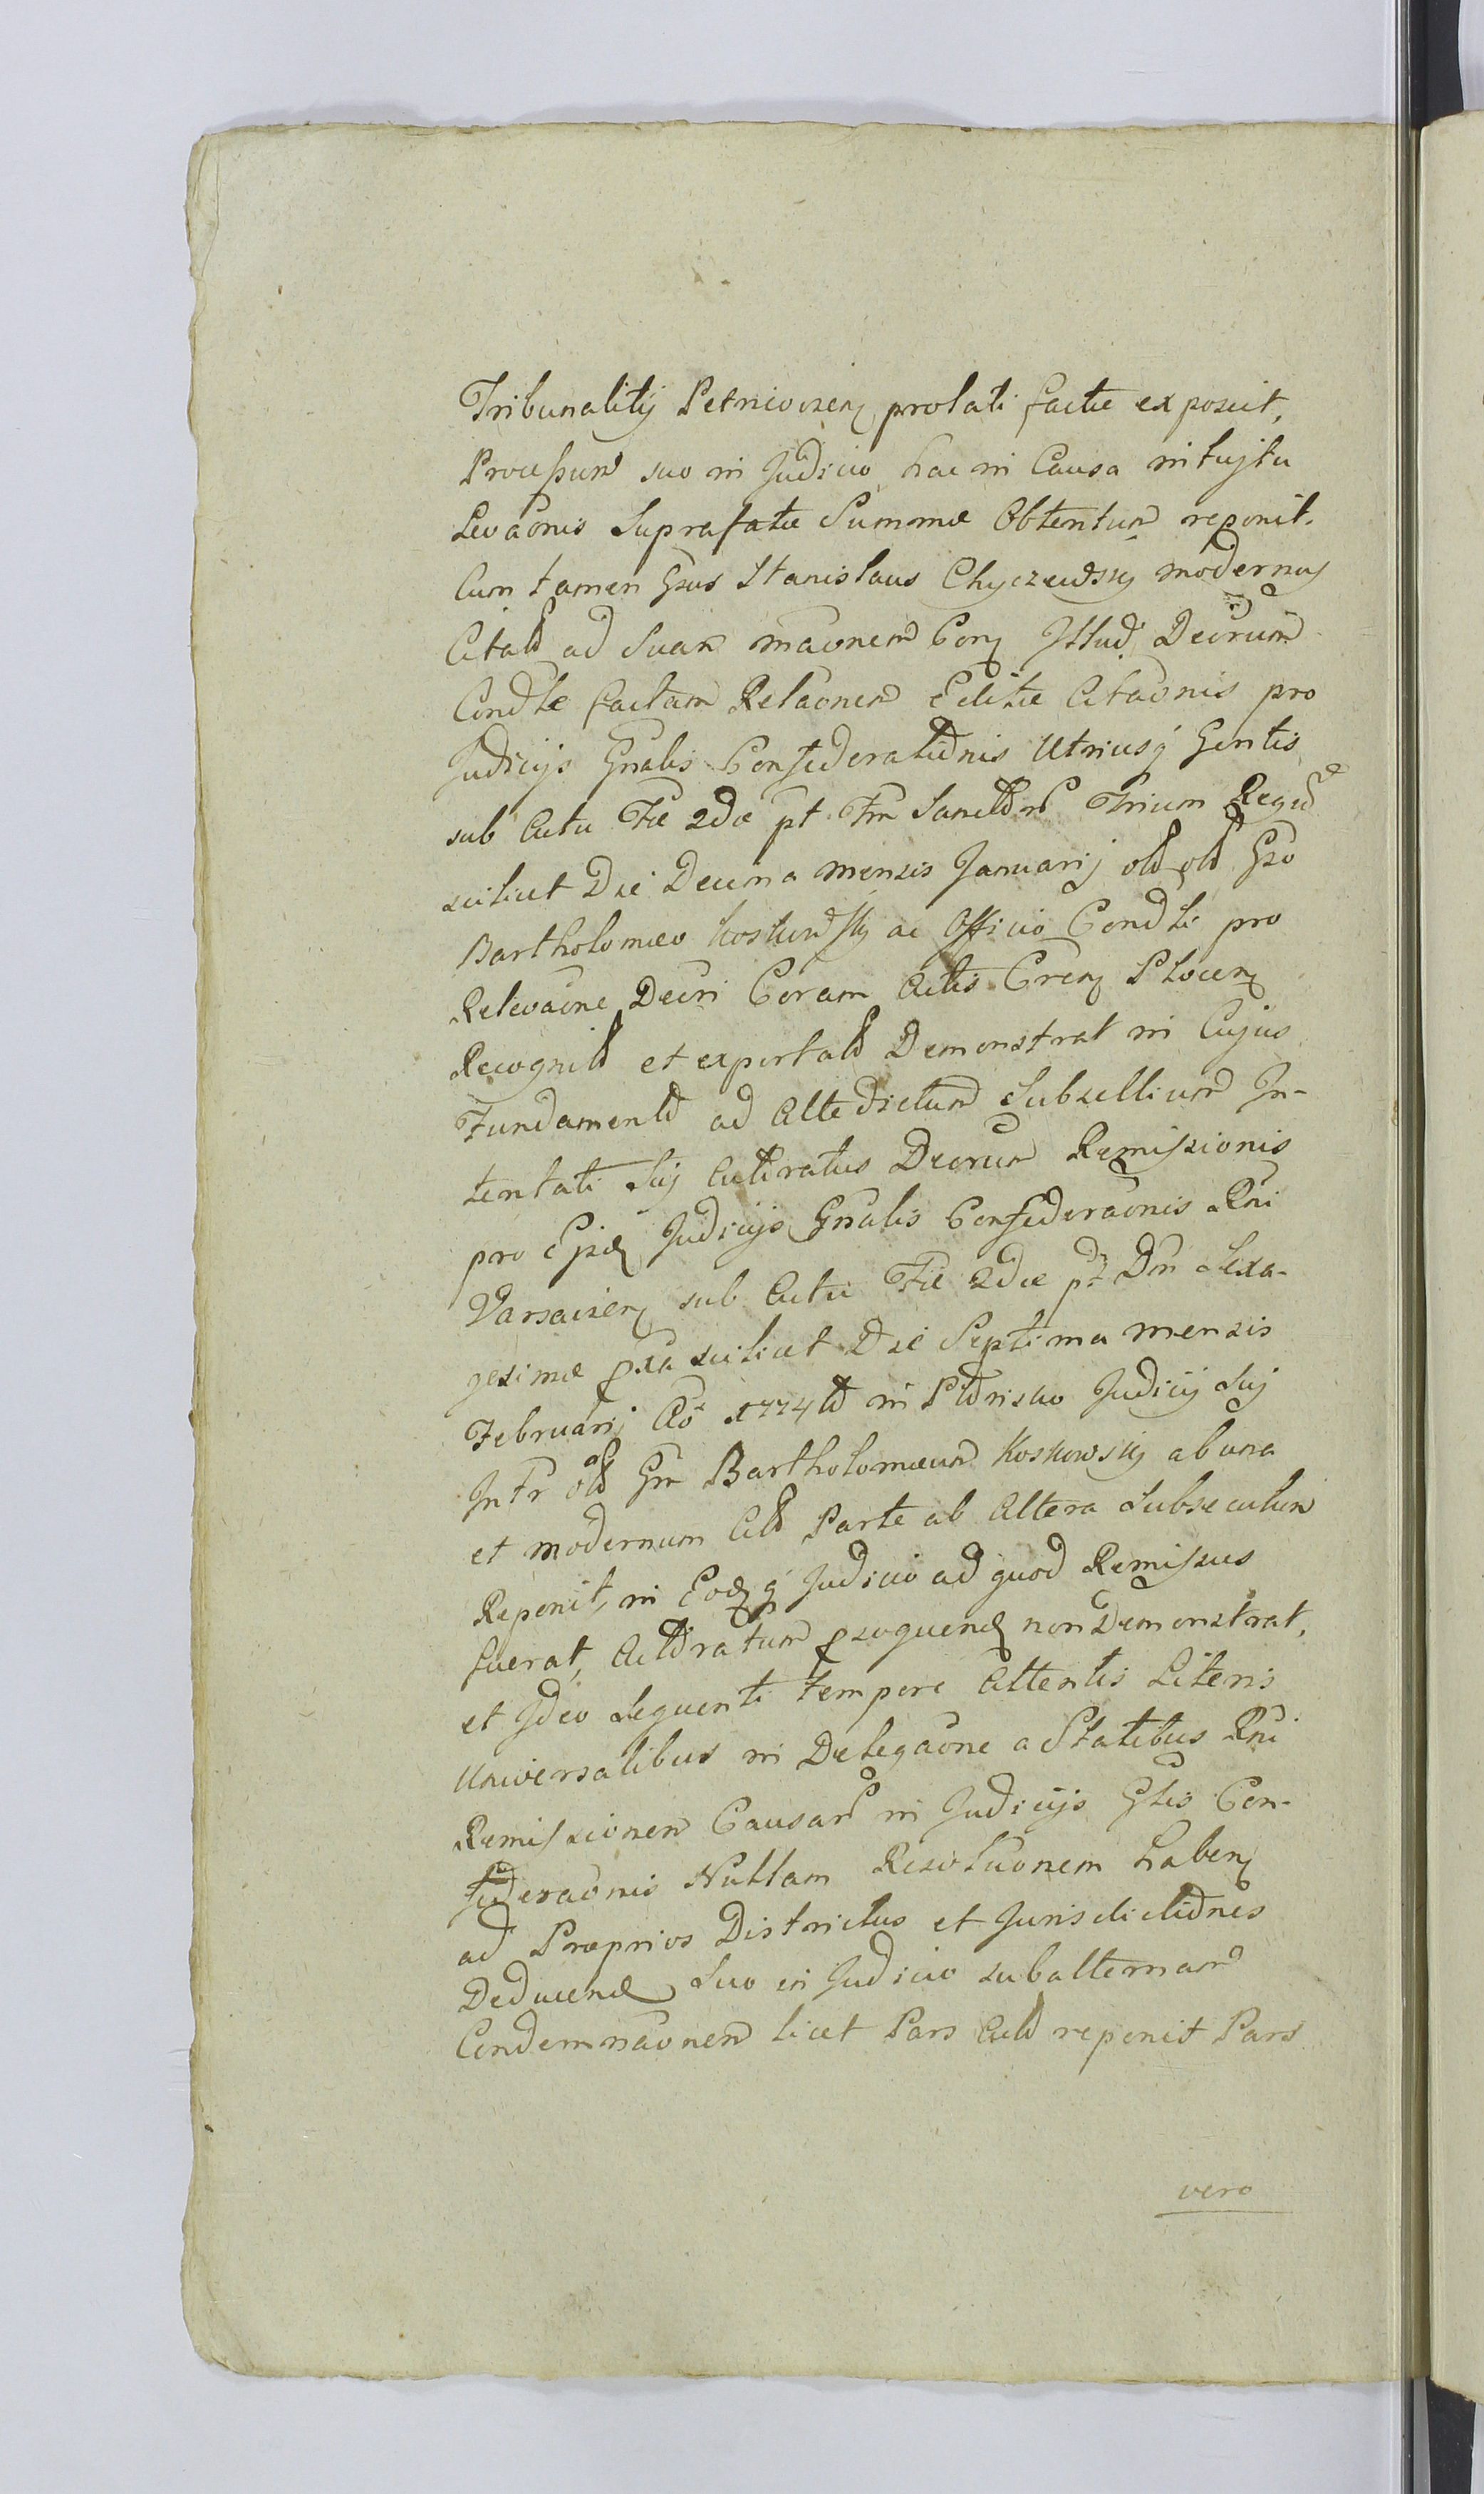 Tribunalitij Petricovien prolati factæ exposcit,
Processum suo in Judicio hac in Causa intujtu
Levaonis Suprafatæ Summæ Obtentum reponit.
Cum tamen Gsus Stanislaus Chyczewsky modernus
Citatus ad Suam Decrum
Condle factam Relaonem Editæ Citaonis pro
Judicijs Gnalis Confederationis Utriusq Gentis
sub Actu Fæ 2dæ pt Fm Sanctorum Trium Regum
scilicet Die Decima mensis Januarij Gso
Bartholomeo Koskowsky ac Officio Condli pro
Relevaone Decri Coram Actis Cren Plocen
Recognito et exportato Demonstrat in Cujus
Fundamento ad Altedictum Subsellium In-
tentati Sui Acticatus Decrum Remissionis
pro Ejsd Judicijs Gnalis Confederaonis Rni
Varsavien sub Actu Fæ 2dæ pt Dm Sexa-
gesimæ pxa scilicet Die Septima mensis
Februarij Ao 1774to in Judicij Sui
Intr Gm Bartholomæum Koskowsky ab una
et modernum Parte ab Altera Subsecutum
Reponit, in Eodq Judicio ad quod Remissus
fuerat, psequend non Demonstrat,
et Ideo Sequenti tempore Attentis Literis
Universalibus in Delegaone a Statibus Rni
Remissionem Causar in Judicijs Glis Con-
federaonis Nullam Resoluonem haben
ad Proprios Districtus et Jurisdictiones
Deducend Suo in Judicio subalternam
Condemnaonem licet Pars reponit Pars
vero